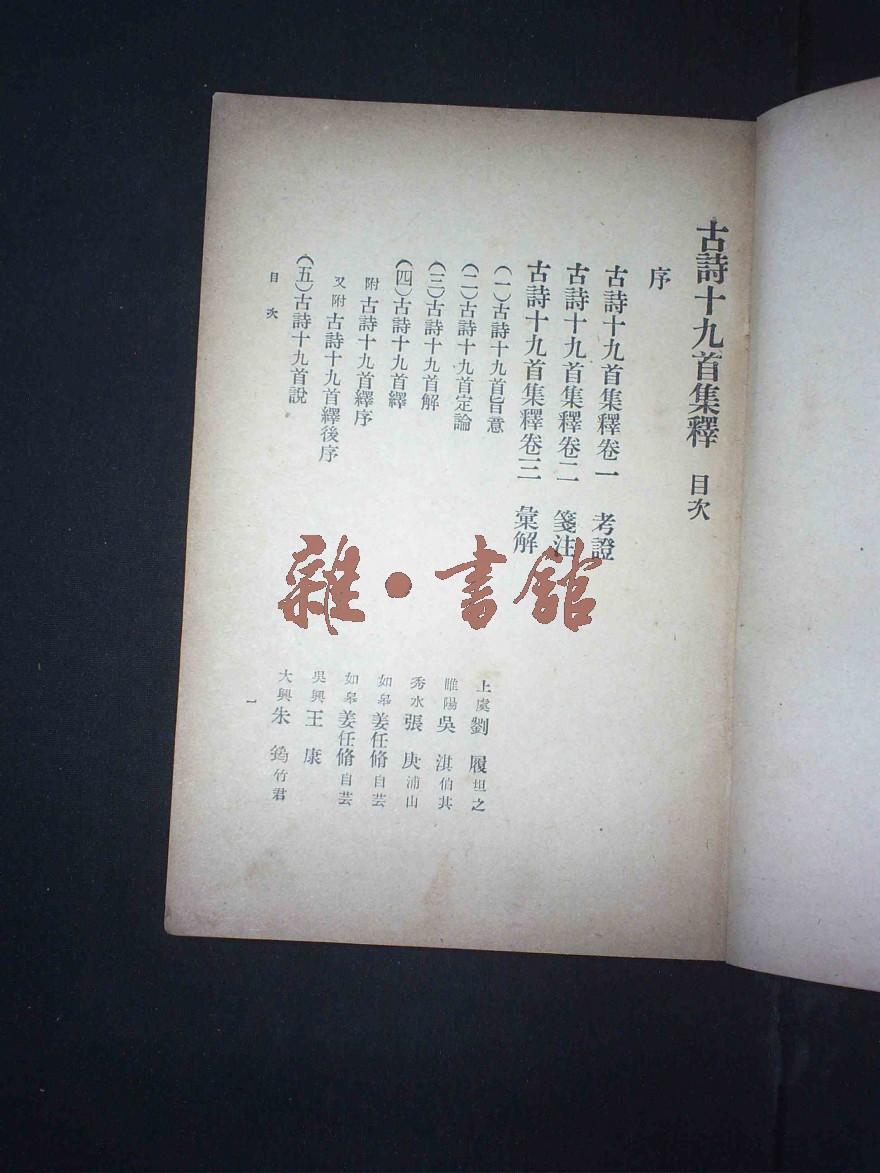 古詩十九首集釋 目次
序
古詩十九首集釋卷一 考證
古詩十九首集釋卷二 箋注
古詩十九首集釋卷三 彙解
(一)古詩十九首旨意 上虞劉履坦之
(二)古詩十九首定論 睢陽吳淇伯其
(三)古詩十九首解 秀水張庚浦山
(四)古詩十九首繹 如皋姜任脩自芸
附 古詩十九首繹序 如皋姜任脩自芸
又附 古詩十九首繹後序 吳興王康
(五)古詩十九首說 大興朱筠竹君
目次 一
雜·書館